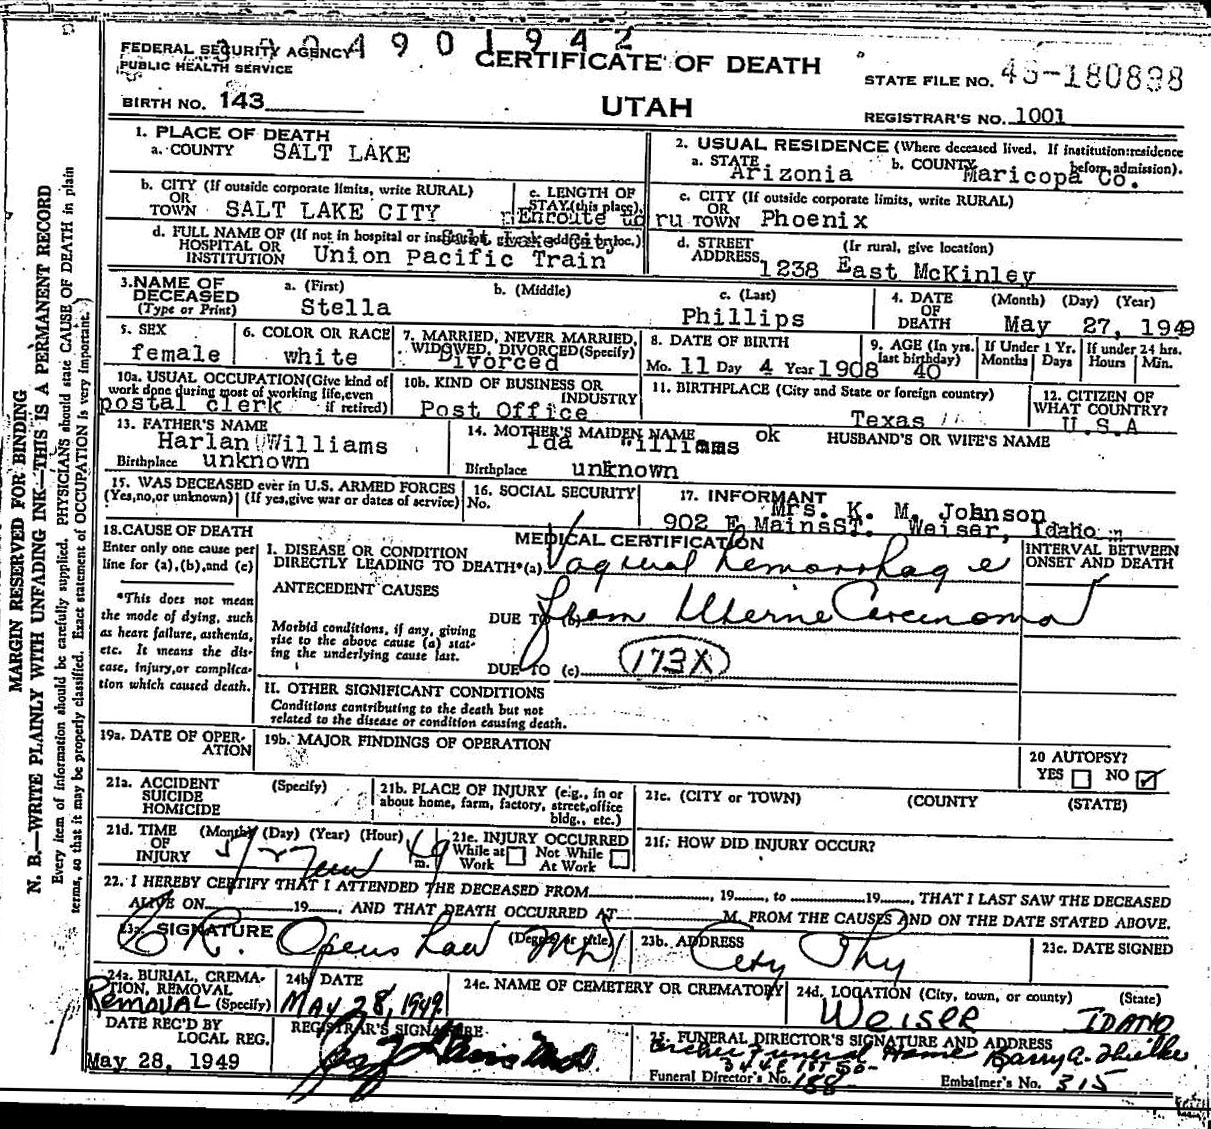 FEDERAL SECURITY AGENCY
PUBLIC HEALTH SERVICE
CERTIFICATE OF DEATH
STATE FILE NO.
BIRTH NO. 143
UTAH
REGISTRAR'S NO. 1001
1. PLACE OF DEATH
a. COUNTY SALT LAKE
2. USUAL RESIDENCE (Where deceased lived. If institution: residence before admission).
a. STATE Arizonia b. COUNTY Maricopa Co.
b. CITY (If outside corporate limits, write RURAL)
OR
TOWN SALT LAKE CITY
c. LENGTH OF
STAY (this place)
Enroute to
Salt Lake City
c. CITY (If outside corporate limits, write RURAL)
OR
TOWN Phoenix
d. FULL NAME OF (If not in hospital or institution, give street address or loc.)
HOSPITAL OR
INSTITUTION Union Pacific Train
d. STREET (If rural, give location)
ADDRESS 1238 East McKinley
3. NAME OF
DECEASED
(Type or Print)
a. (First)
Stella
b. (Middle)
c. (Last)
Phillips
4. DATE
OF
DEATH
(Month) (Day) (Year)
May 27, 1949
5. SEX
female
6. COLOR OR RACE
white
7. MARRIED, NEVER MARRIED,
WIDOWED, DIVORCED (Specify)
Divorced
8. DATE OF BIRTH
Mo. 11 Day 4 Year 1908
9. AGE (In yrs.
last birthday)
40
If Under 1 Yr.
Months Days
If under 24 hrs.
Hours Min.
10a. USUAL OCCUPATION (Give kind of
work done during most of working life, even
if retired)
postal clerk
10b. KIND OF BUSINESS OR
INDUSTRY
Post Office
11. BIRTHPLACE (City and State or foreign country)
Texas
12. CITIZEN OF
WHAT COUNTRY?
U.S.A
13. FATHER'S NAME
Harlan Williams
Birthplace unknown
14. MOTHER'S MAIDEN NAME
Ida Williams ok
Birthplace unknown
HUSBAND'S OR WIFE'S NAME
15. WAS DECEASED ever in U.S. ARMED FORCES
(Yes, no, or unknown) (If yes, give war or dates of service)
16. SOCIAL SECURITY
No.
17. INFORMANT
Mrs. K. M. Johnson
902 E MainsST. Weiser, Idaho
18. CAUSE OF DEATH
Enter only one cause per
line for (a), (b), and (c)
*This does not mean
the mode of dying, such
as heart failure, asthenia,
etc. It means the dis-
ease, injury, or complica-
tion which caused death.
MEDICAL CERTIFICATION
I. DISEASE OR CONDITION
DIRECTLY LEADING TO DEATH*(a) Vaginal hemorrhage
ANTECEDENT CAUSES
DUE TO (b) from Uterine Carcinoma
Morbid conditions, if any, giving
rise to the above cause (a) stat-
ing the underlying cause last.
DUE TO (c) 173X
INTERVAL BETWEEN
ONSET AND DEATH
II. OTHER SIGNIFICANT CONDITIONS
Conditions contributing to the death but not
related to the disease or condition causing death.
19a. DATE OF OPER-
ATION
19b. MAJOR FINDINGS OF OPERATION
20 AUTOPSY?
YES NO
21a. ACCIDENT
SUICIDE
HOMICIDE
(Specify)
21b. PLACE OF INJURY (e.g., in or
about home, farm, factory, street, office
bldg., etc.)
21c. (CITY or TOWN) (COUNTY) (STATE)
21d. TIME
OF
INJURY
(Month) (Day) (Year) (Hour)
m.
21e. INJURY OCCURRED
While at
Work
Not While
At Work
21f. HOW DID INJURY OCCUR?
22. I HEREBY CERTIFY THAT I ATTENDED THE DECEASED FROM 19 , to 19 , THAT I LAST SAW THE DECEASED
ALIVE ON 19 , AND THAT DEATH OCCURRED AT M. FROM THE CAUSES AND ON THE DATE STATED ABOVE.
23a. SIGNATURE (Degree or title)
C R. Openshaw MD
23b. ADDRESS
City Phy
23c. DATE SIGNED
24a. BURIAL, CREMA-
TION, REMOVAL
REMOVAL (Specify)
24b DATE
MAY 28, 1949.
24c. NAME OF CEMETERY OR CREMATORY
24d. LOCATION (City, town, or county) (State)
WEISER IDAHO
DATE REC'D BY
LOCAL REG.
May 28, 1949
REGISTRAR'S SIGNATURE
25. FUNERAL DIRECTOR'S SIGNATURE AND ADDRESS
Funeral Home
Funeral Director's No. 188 Embalmer's No. 315
MARGIN RESERVED FOR BINDING
N. B.—WRITE PLAINLY WITH UNFADING INK—THIS IS A PERMANENT RECORD
Every item of information should be carefully supplied. PHYSICIANS should state CAUSE OF DEATH in plain
terms, so that it may be properly classified. Exact statement of OCCUPATION is very important.